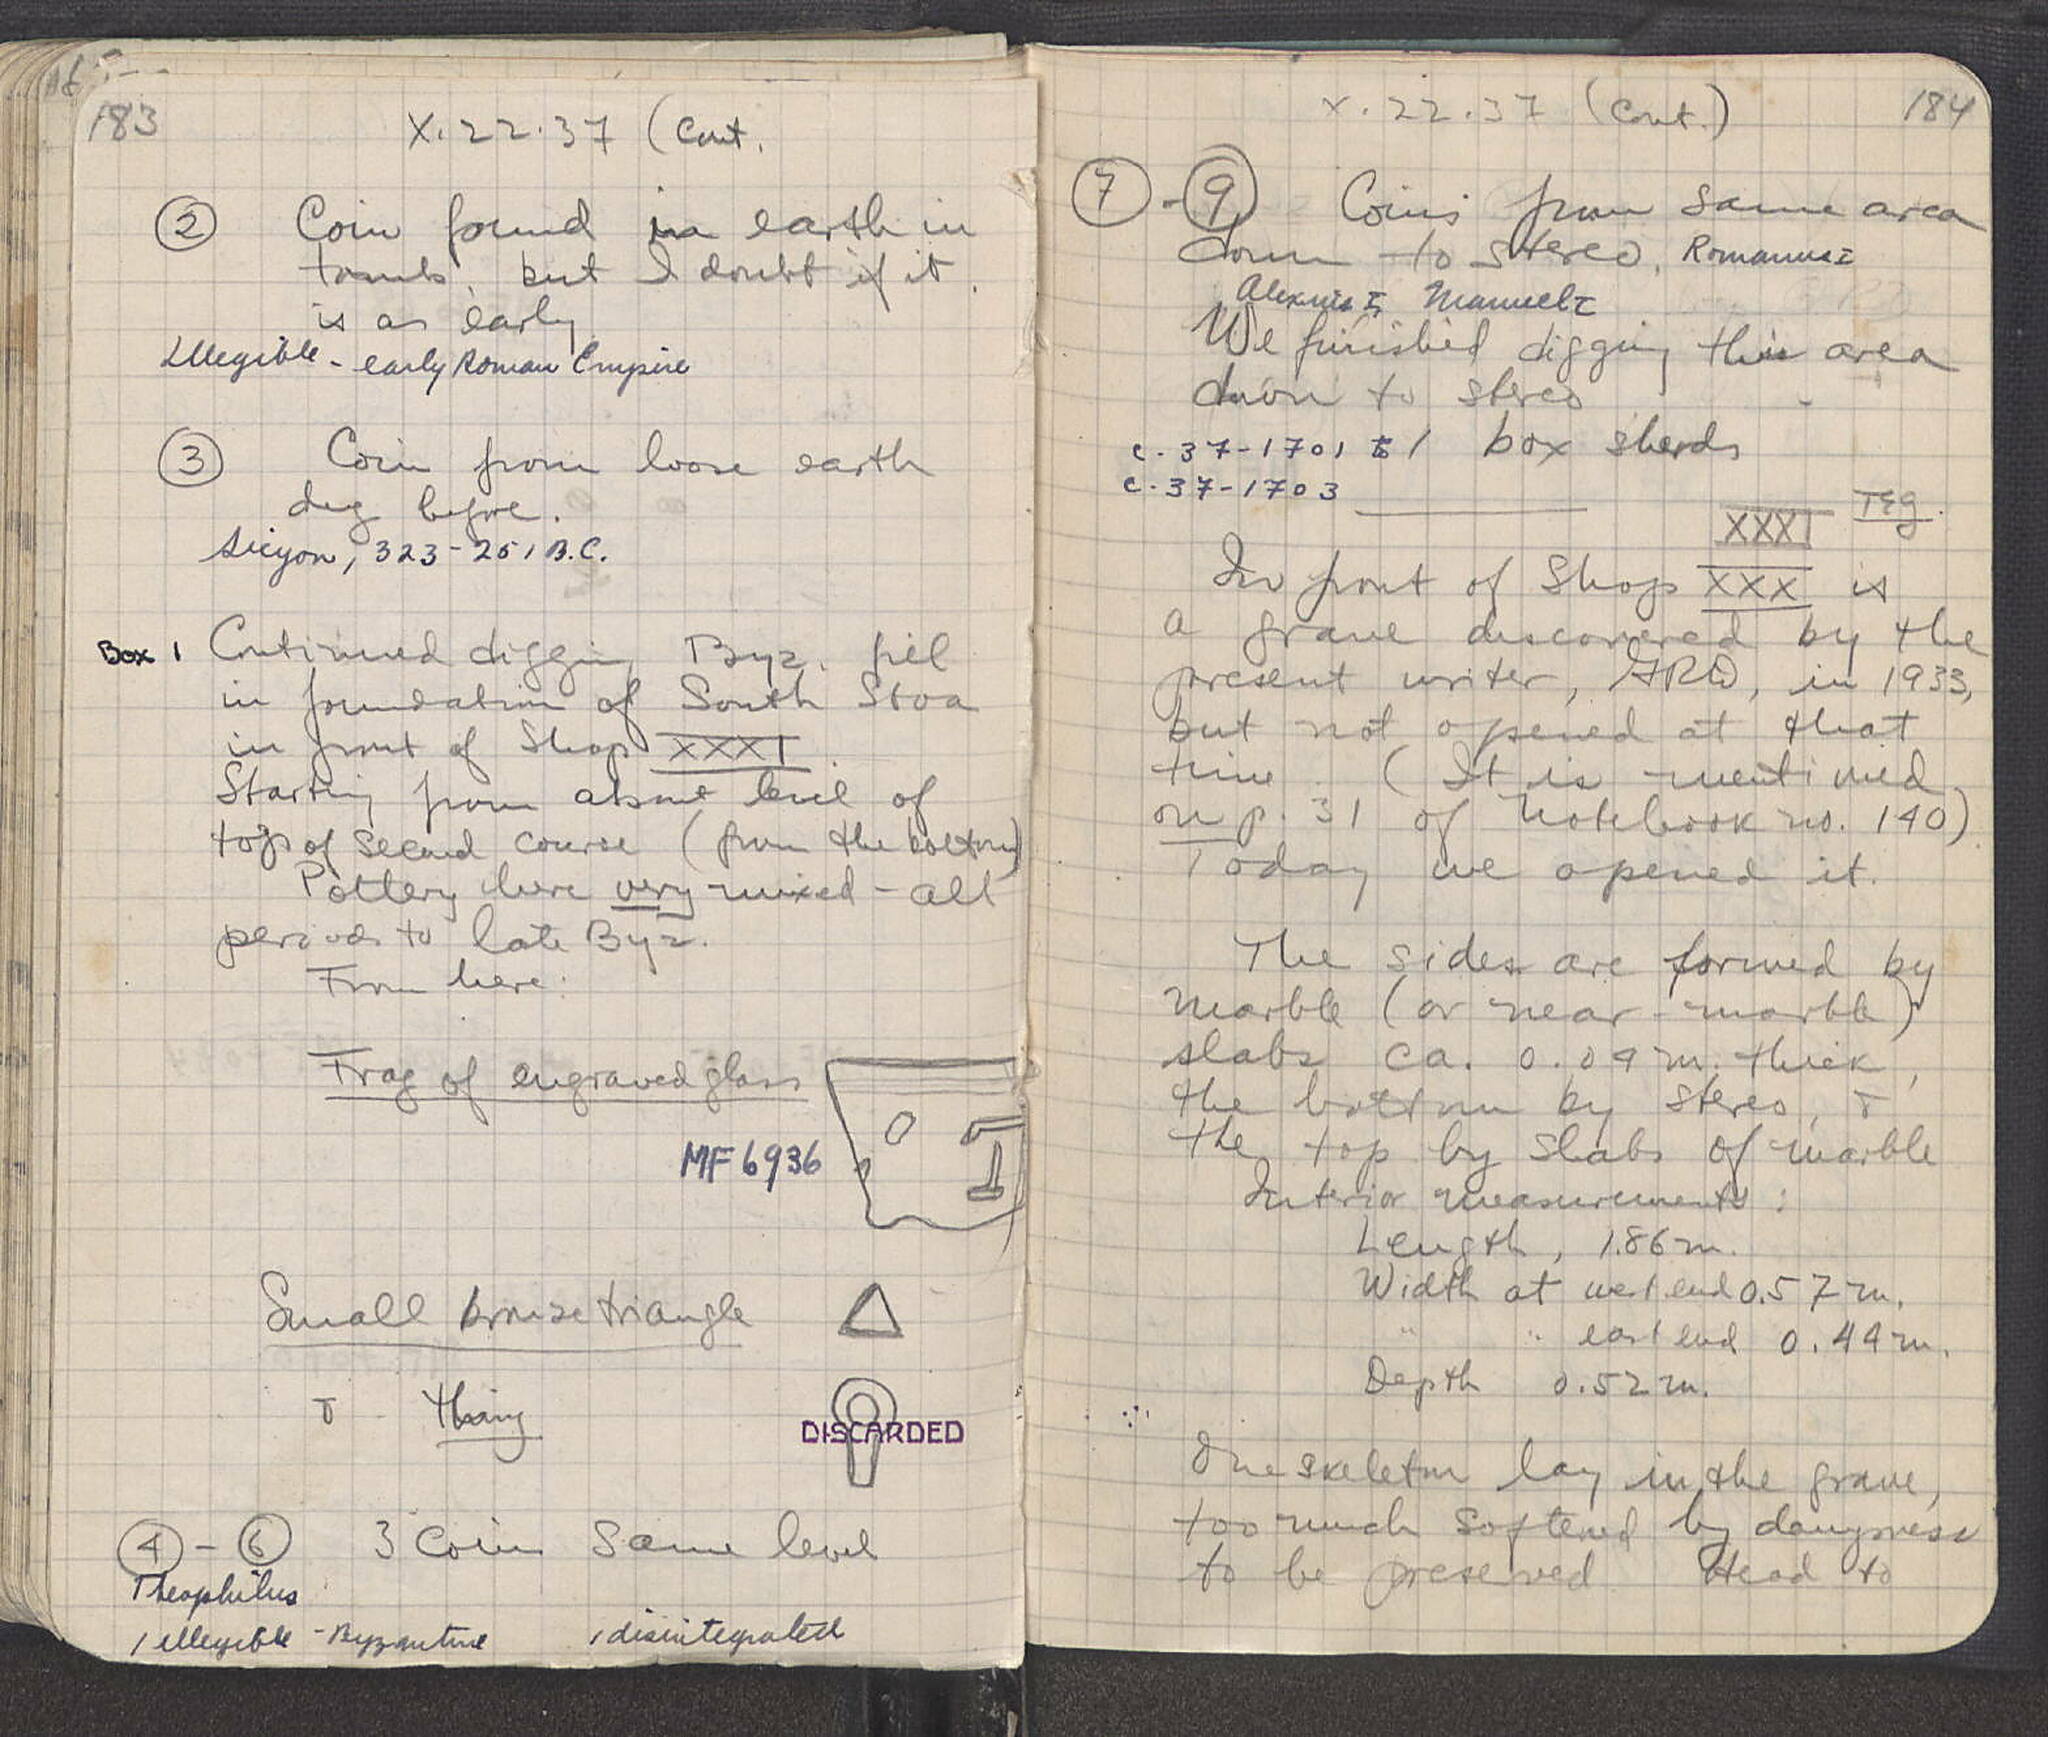 183
X.22.37 (Cont.
2 Coin found in earth in
tomb, but I doubt if it
is as early
Illegible - early Roman Empire
3 Coin from loose earth
dug before.
Sicyon, 323-251 B.C.
Box 1 Continued digging Byz. fill
in foundation of South Stoa
in front of Shop XXXI.
Starting from about level of
top of second course (from the bottom)
Pottery here very mixed - all
periods to late Byz.
From here:
Frag of engraved glass
MF 6936
Small bronze triangle
thing
DISCARDED
4 - 6 3 Coins same level
Theophilus
1 illegible - Byzantine 1 disintegrated
X.22.37 (Cont.) 184
7 - 9 Coins from same area
down to stereo. Romanus I
Alexius I Manuel I
We finished digging this area
down to stereo
C.37-1701 to 1 box sherds
C.37-1703
XXXI
In front of Shop XXX is
a grave discovered by the
present writer, GRD, in 1933,
but not opened at that
time. (It is mentioned
on p. 31 of Notebook no. 140)
Today we opened it.
The sides are formed by
marble (or near-marble)
slabs ca. 0.04 m. thick,
the bottom by stereo, +
the top by slabs of marble
Interior measurements:
Length, 1.86 m.
Width at west end 0.57 m.
" " east end 0.44 m.
Depth 0.52 m.
One skeleton lay in the grave,
too much softened by dampness
to be preserved Head to